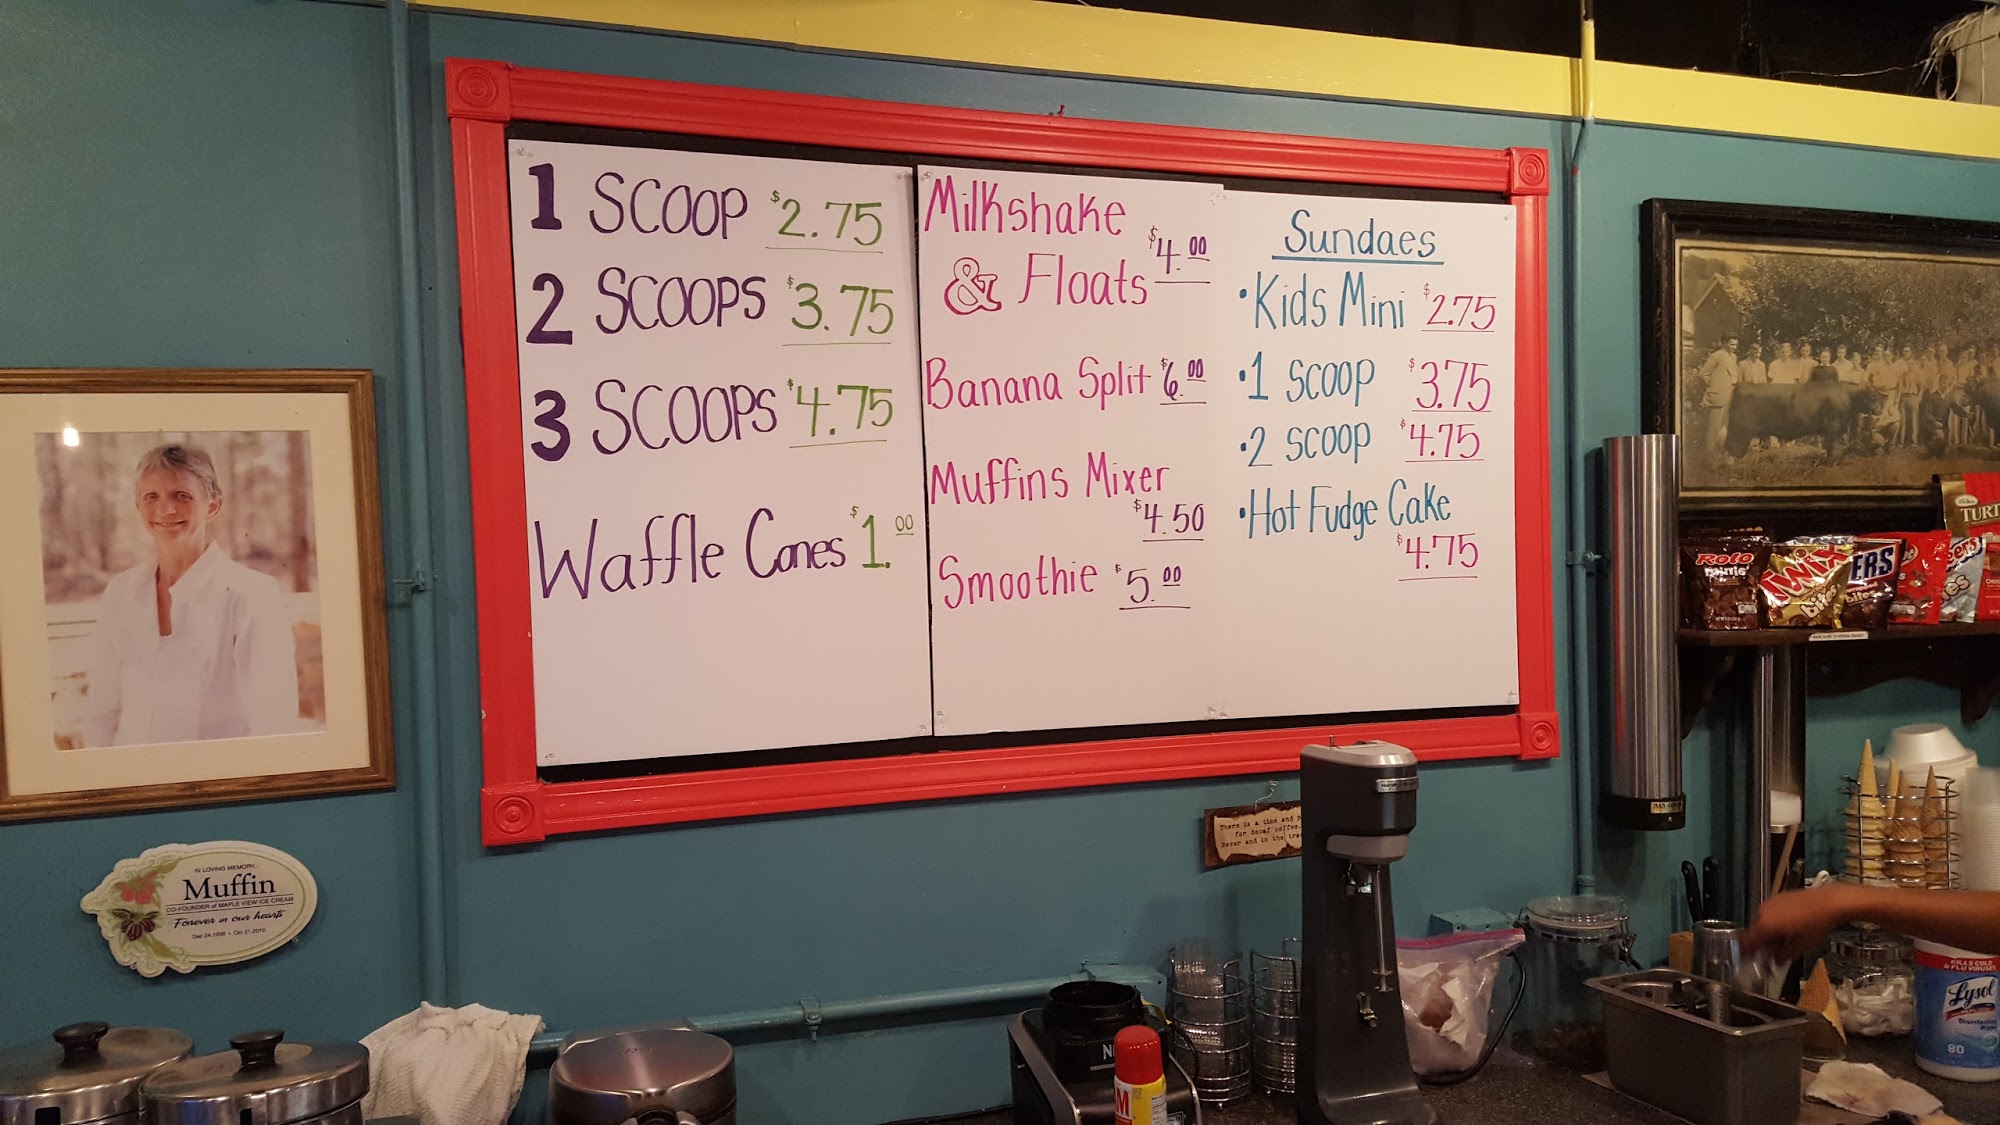 1 SCOOP $2.75
2 SCOOPS $3.75
3 SCOOPS $4.75
Waffle Cones $1.00
Milkshake
& Floats $4.00
Banana Split $6.00
Muffins Mixer
$4.50
Smoothie $5.00
Sundaes
• Kids Mini $2.75
• 1 scoop $3.75
• 2 scoop $4.75
• Hot Fudge Cake
$4.75
IN LOVING MEMORY...
Muffin
CO-FOUNDER of MAPLE VIEW ICE CREAM
Forever in our hearts
Dec 24,1958 • Oct 21,2010
There is a time and
for decaf coffee.
Never and in the
ROLO
minis
TWIX
bites
ERS
bites
TURT
KILLS COLD
& FLU VIRUSES
Lysol
Disinfecting
80